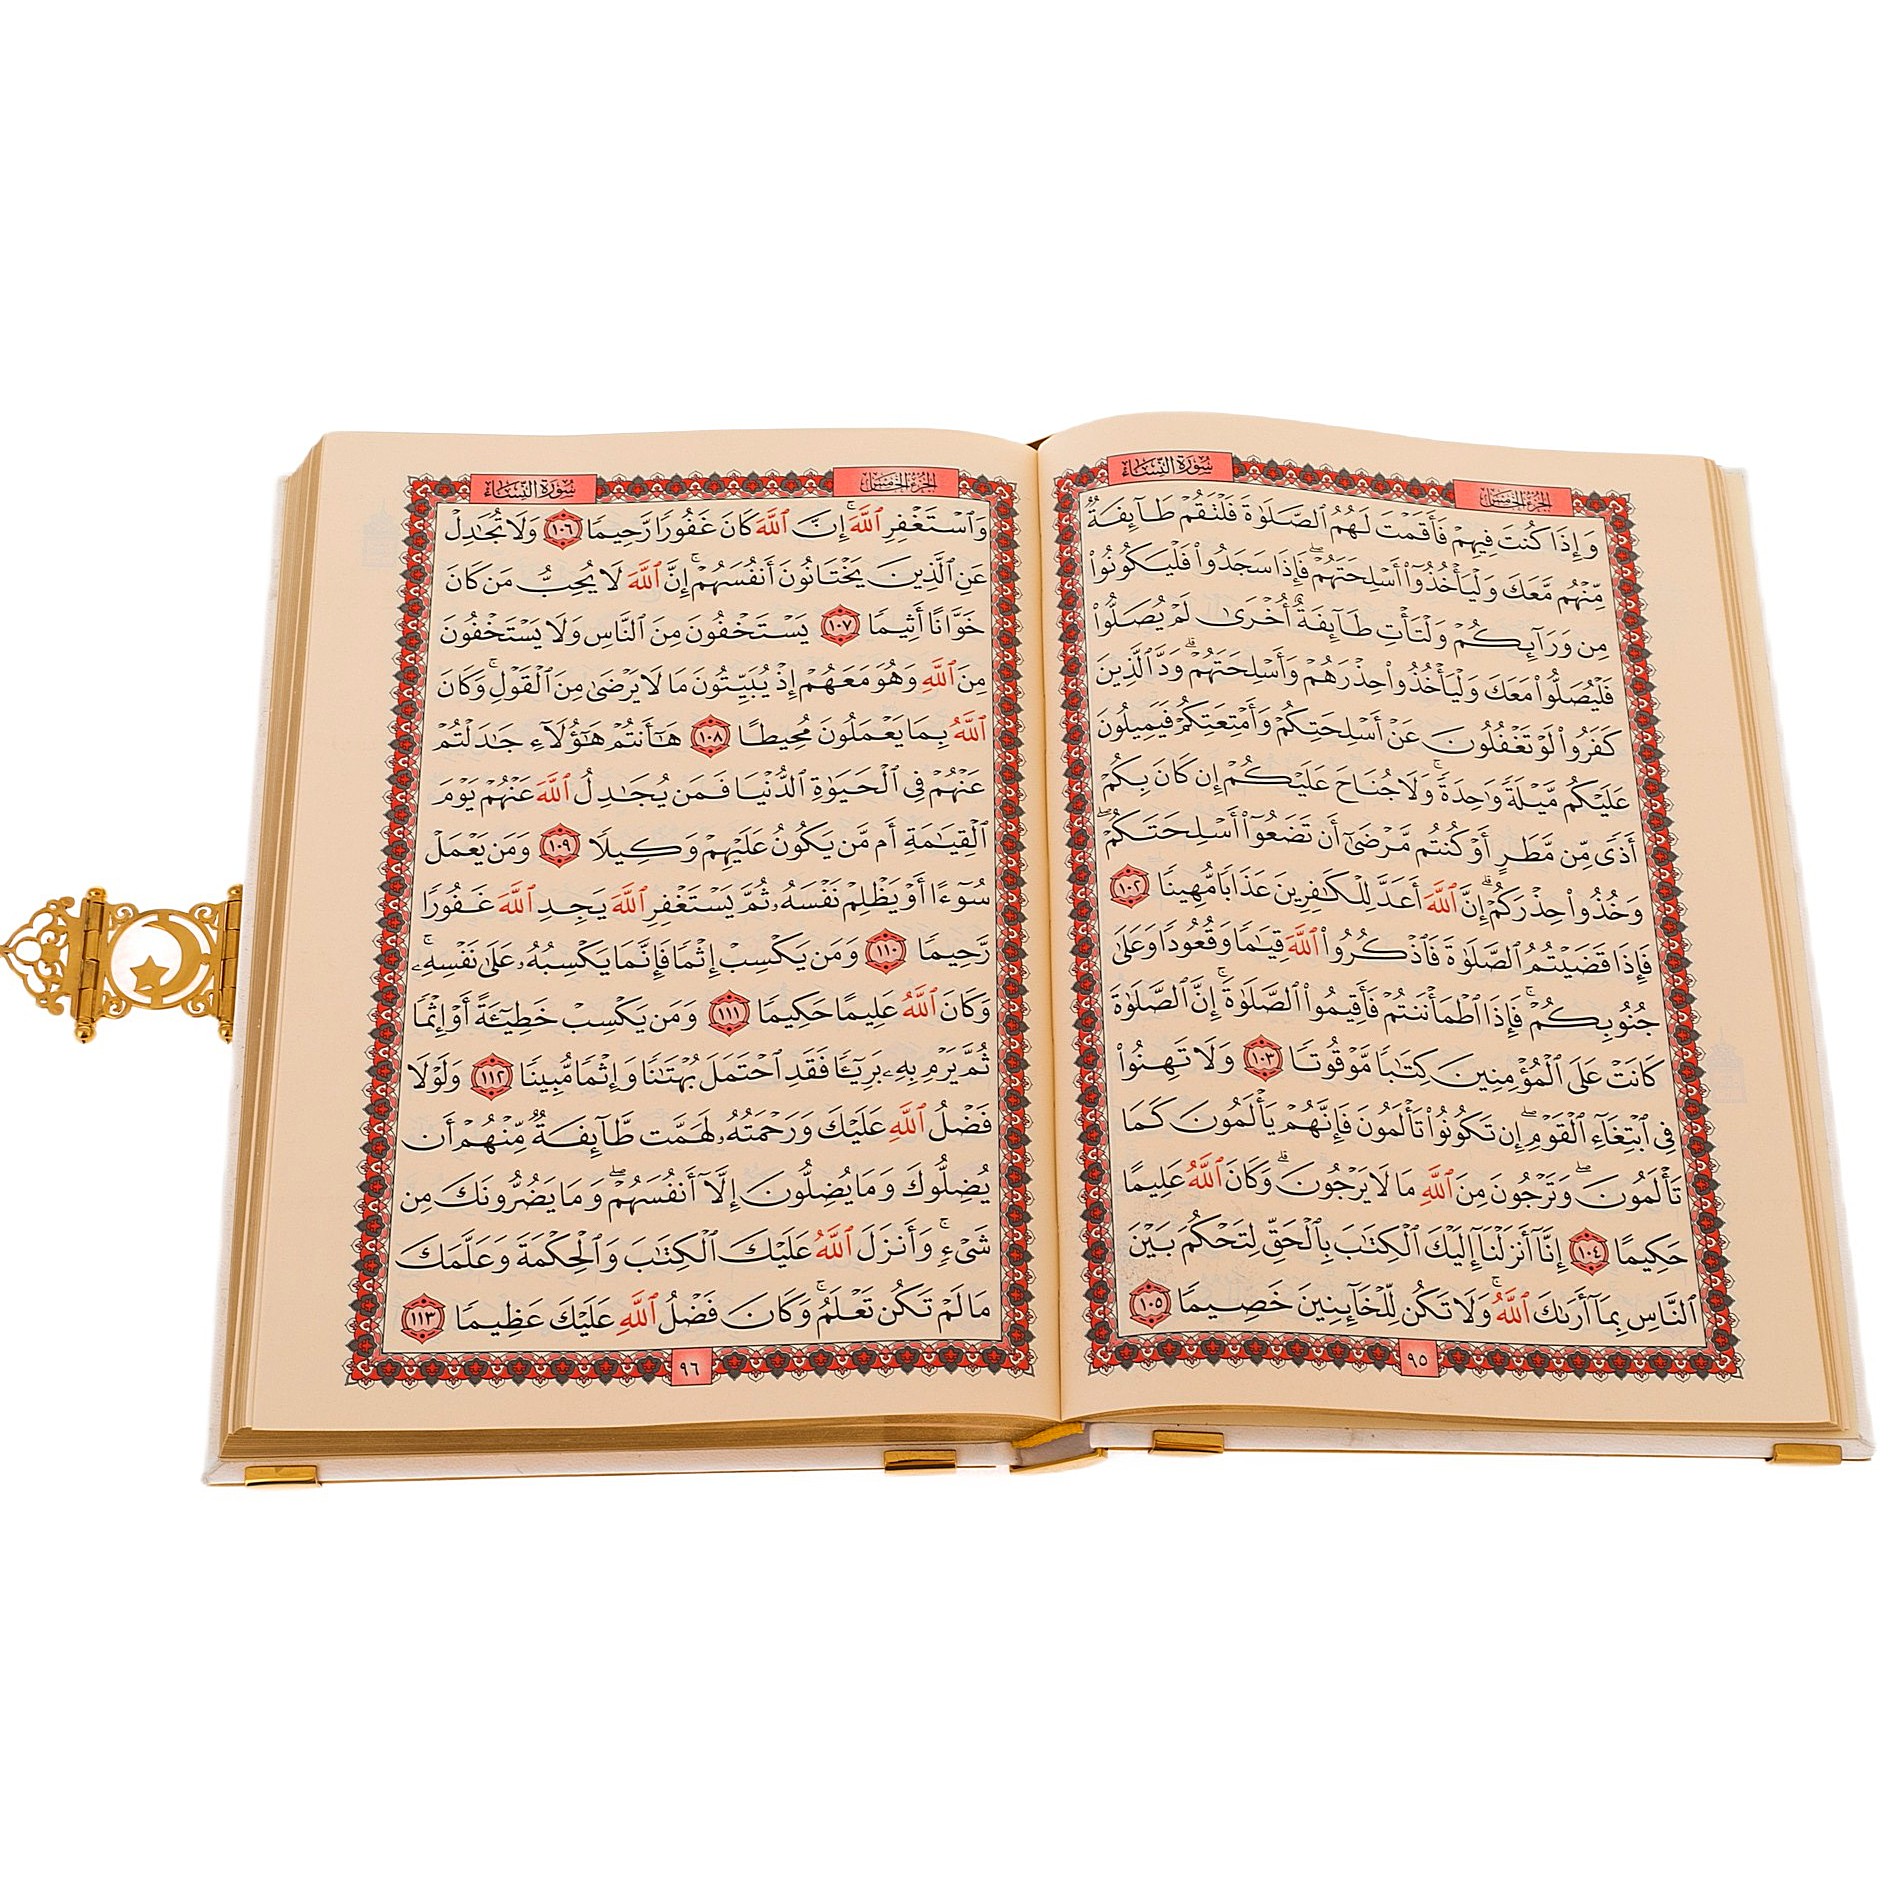 سُورَةُ النِّسَاء
الجُزْءُ الخَامِسُ
وَإِذَا كُنتَ فِيهِمْ فَأَقَمْتَ لَهُمُ ٱلصَّلَوٰةَ فَلْتَقُمْ طَآئِفَةٌ
مِّنْهُم مَّعَكَ وَلْيَأْخُذُوٓا۟ أَسْلِحَتَهُمْ ۖ فَإِذَا سَجَدُوا۟ فَلْيَكُونُوا۟
مِن وَرَآئِكُمْ وَلْتَأْتِ طَآئِفَةٌ أُخْرَىٰ لَمْ يُصَلُّوا۟
فَلْيُصَلُّوا۟ مَعَكَ وَلْيَأْخُذُوا۟ حِذْرَهُمْ وَأَسْلِحَتَهُمْ ۗ وَدَّ ٱلَّذِينَ
كَفَرُوا۟ لَوْ تَغْفُلُونَ عَنْ أَسْلِحَتِكُمْ وَأَمْتِعَتِكُمْ فَيَمِيلُونَ
عَلَيْكُم مَّيْلَةً وَٰحِدَةً ۚ وَلَا جُنَاحَ عَلَيْكُمْ إِن كَانَ بِكُمْ
أَذًى مِّن مَّطَرٍ أَوْ كُنتُم مَّرْضَىٰٓ أَن تَضَعُوٓا۟ أَسْلِحَتَكُمْ ۖ
وَخُذُوا۟ حِذْرَكُمْ ۗ إِنَّ ٱللَّهَ أَعَدَّ لِلْكَٰفِرِينَ عَذَابًا مُّهِينًا ١٠٢
فَإِذَا قَضَيْتُمُ ٱلصَّلَوٰةَ فَٱذْكُرُوا۟ ٱللَّهَ قِيَٰمًا وَقُعُودًا وَعَلَىٰ
جُنُوبِكُمْ ۚ فَإِذَا ٱطْمَأْنَنتُمْ فَأَقِيمُوا۟ ٱلصَّلَوٰةَ ۚ إِنَّ ٱلصَّلَوٰةَ
كَانَتْ عَلَى ٱلْمُؤْمِنِينَ كِتَٰبًا مَّوْقُوتًا ١٠٣ وَلَا تَهِنُوا۟
فِى ٱبْتِغَآءِ ٱلْقَوْمِ ۖ إِن تَكُونُوا۟ تَأْلَمُونَ فَإِنَّهُمْ يَأْلَمُونَ كَمَا
تَأْلَمُونَ ۖ وَتَرْجُونَ مِنَ ٱللَّهِ مَا لَا يَرْجُونَ ۗ وَكَانَ ٱللَّهُ عَلِيمًا
حَكِيمًا ١٠٤ إِنَّآ أَنزَلْنَآ إِلَيْكَ ٱلْكِتَٰبَ بِٱلْحَقِّ لِتَحْكُمَ بَيْنَ
ٱلنَّاسِ بِمَآ أَرَىٰكَ ٱللَّهُ ۚ وَلَا تَكُن لِّلْخَآئِنِينَ خَصِيمًا ١٠٥
٩٥
سُورَةُ النِّسَاء
الجُزْءُ الخَامِسُ
وَٱسْتَغْفِرِ ٱللَّهَ ۖ إِنَّ ٱللَّهَ كَانَ غَفُورًا رَّحِيمًا ١٠٦ وَلَا تُجَٰدِلْ
عَنِ ٱلَّذِينَ يَخْتَانُونَ أَنفُسَهُمْ ۚ إِنَّ ٱللَّهَ لَا يُحِبُّ مَن كَانَ
خَوَّانًا أَثِيمًا ١٠٧ يَسْتَخْفُونَ مِنَ ٱلنَّاسِ وَلَا يَسْتَخْفُونَ
مِنَ ٱللَّهِ وَهُوَ مَعَهُمْ إِذْ يُبَيِّتُونَ مَا لَا يَرْضَىٰ مِنَ ٱلْقَوْلِ ۚ وَكَانَ
ٱللَّهُ بِمَا يَعْمَلُونَ مُحِيطًا ١٠٨ هَٰٓأَنتُمْ هَٰٓؤُلَآءِ جَٰدَلْتُمْ
عَنْهُمْ فِى ٱلْحَيَوٰةِ ٱلدُّنْيَا فَمَن يُجَٰدِلُ ٱللَّهَ عَنْهُمْ يَوْمَ
ٱلْقِيَٰمَةِ أَم مَّن يَكُونُ عَلَيْهِمْ وَكِيلًا ١٠٩ وَمَن يَعْمَلْ
سُوٓءًا أَوْ يَظْلِمْ نَفْسَهُۥ ثُمَّ يَسْتَغْفِرِ ٱللَّهَ يَجِدِ ٱللَّهَ غَفُورًا
رَّحِيمًا ١١٠ وَمَن يَكْسِبْ إِثْمًا فَإِنَّمَا يَكْسِبُهُۥ عَلَىٰ نَفْسِهِۦ ۚ
وَكَانَ ٱللَّهُ عَلِيمًا حَكِيمًا ١١١ وَمَن يَكْسِبْ خَطِيٓـَٔةً أَوْ إِثْمًا
ثُمَّ يَرْمِ بِهِۦ بَرِيٓـًٔا فَقَدِ ٱحْتَمَلَ بُهْتَٰنًا وَإِثْمًا مُّبِينًا ١١٢ وَلَوْلَا
فَضْلُ ٱللَّهِ عَلَيْكَ وَرَحْمَتُهُۥ لَهَمَّت طَّآئِفَةٌ مِّنْهُمْ أَن
يُضِلُّوكَ وَمَا يُضِلُّونَ إِلَّآ أَنفُسَهُمْ ۖ وَمَا يَضُرُّونَكَ مِن
شَىْءٍ ۚ وَأَنزَلَ ٱللَّهُ عَلَيْكَ ٱلْكِتَٰبَ وَٱلْحِكْمَةَ وَعَلَّمَكَ
مَا لَمْ تَكُن تَعْلَمُ ۚ وَكَانَ فَضْلُ ٱللَّهِ عَلَيْكَ عَظِيمًا ١١٣
٩٦